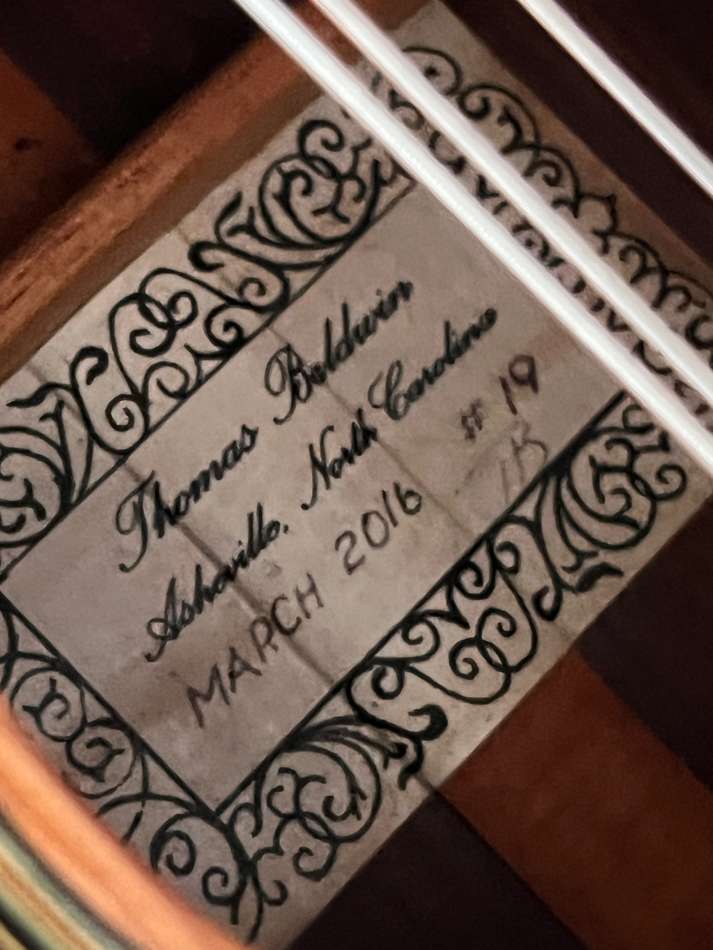 Thomas Beldwin
Asheville, North Carolina
MARCH 2016 # 19
TB